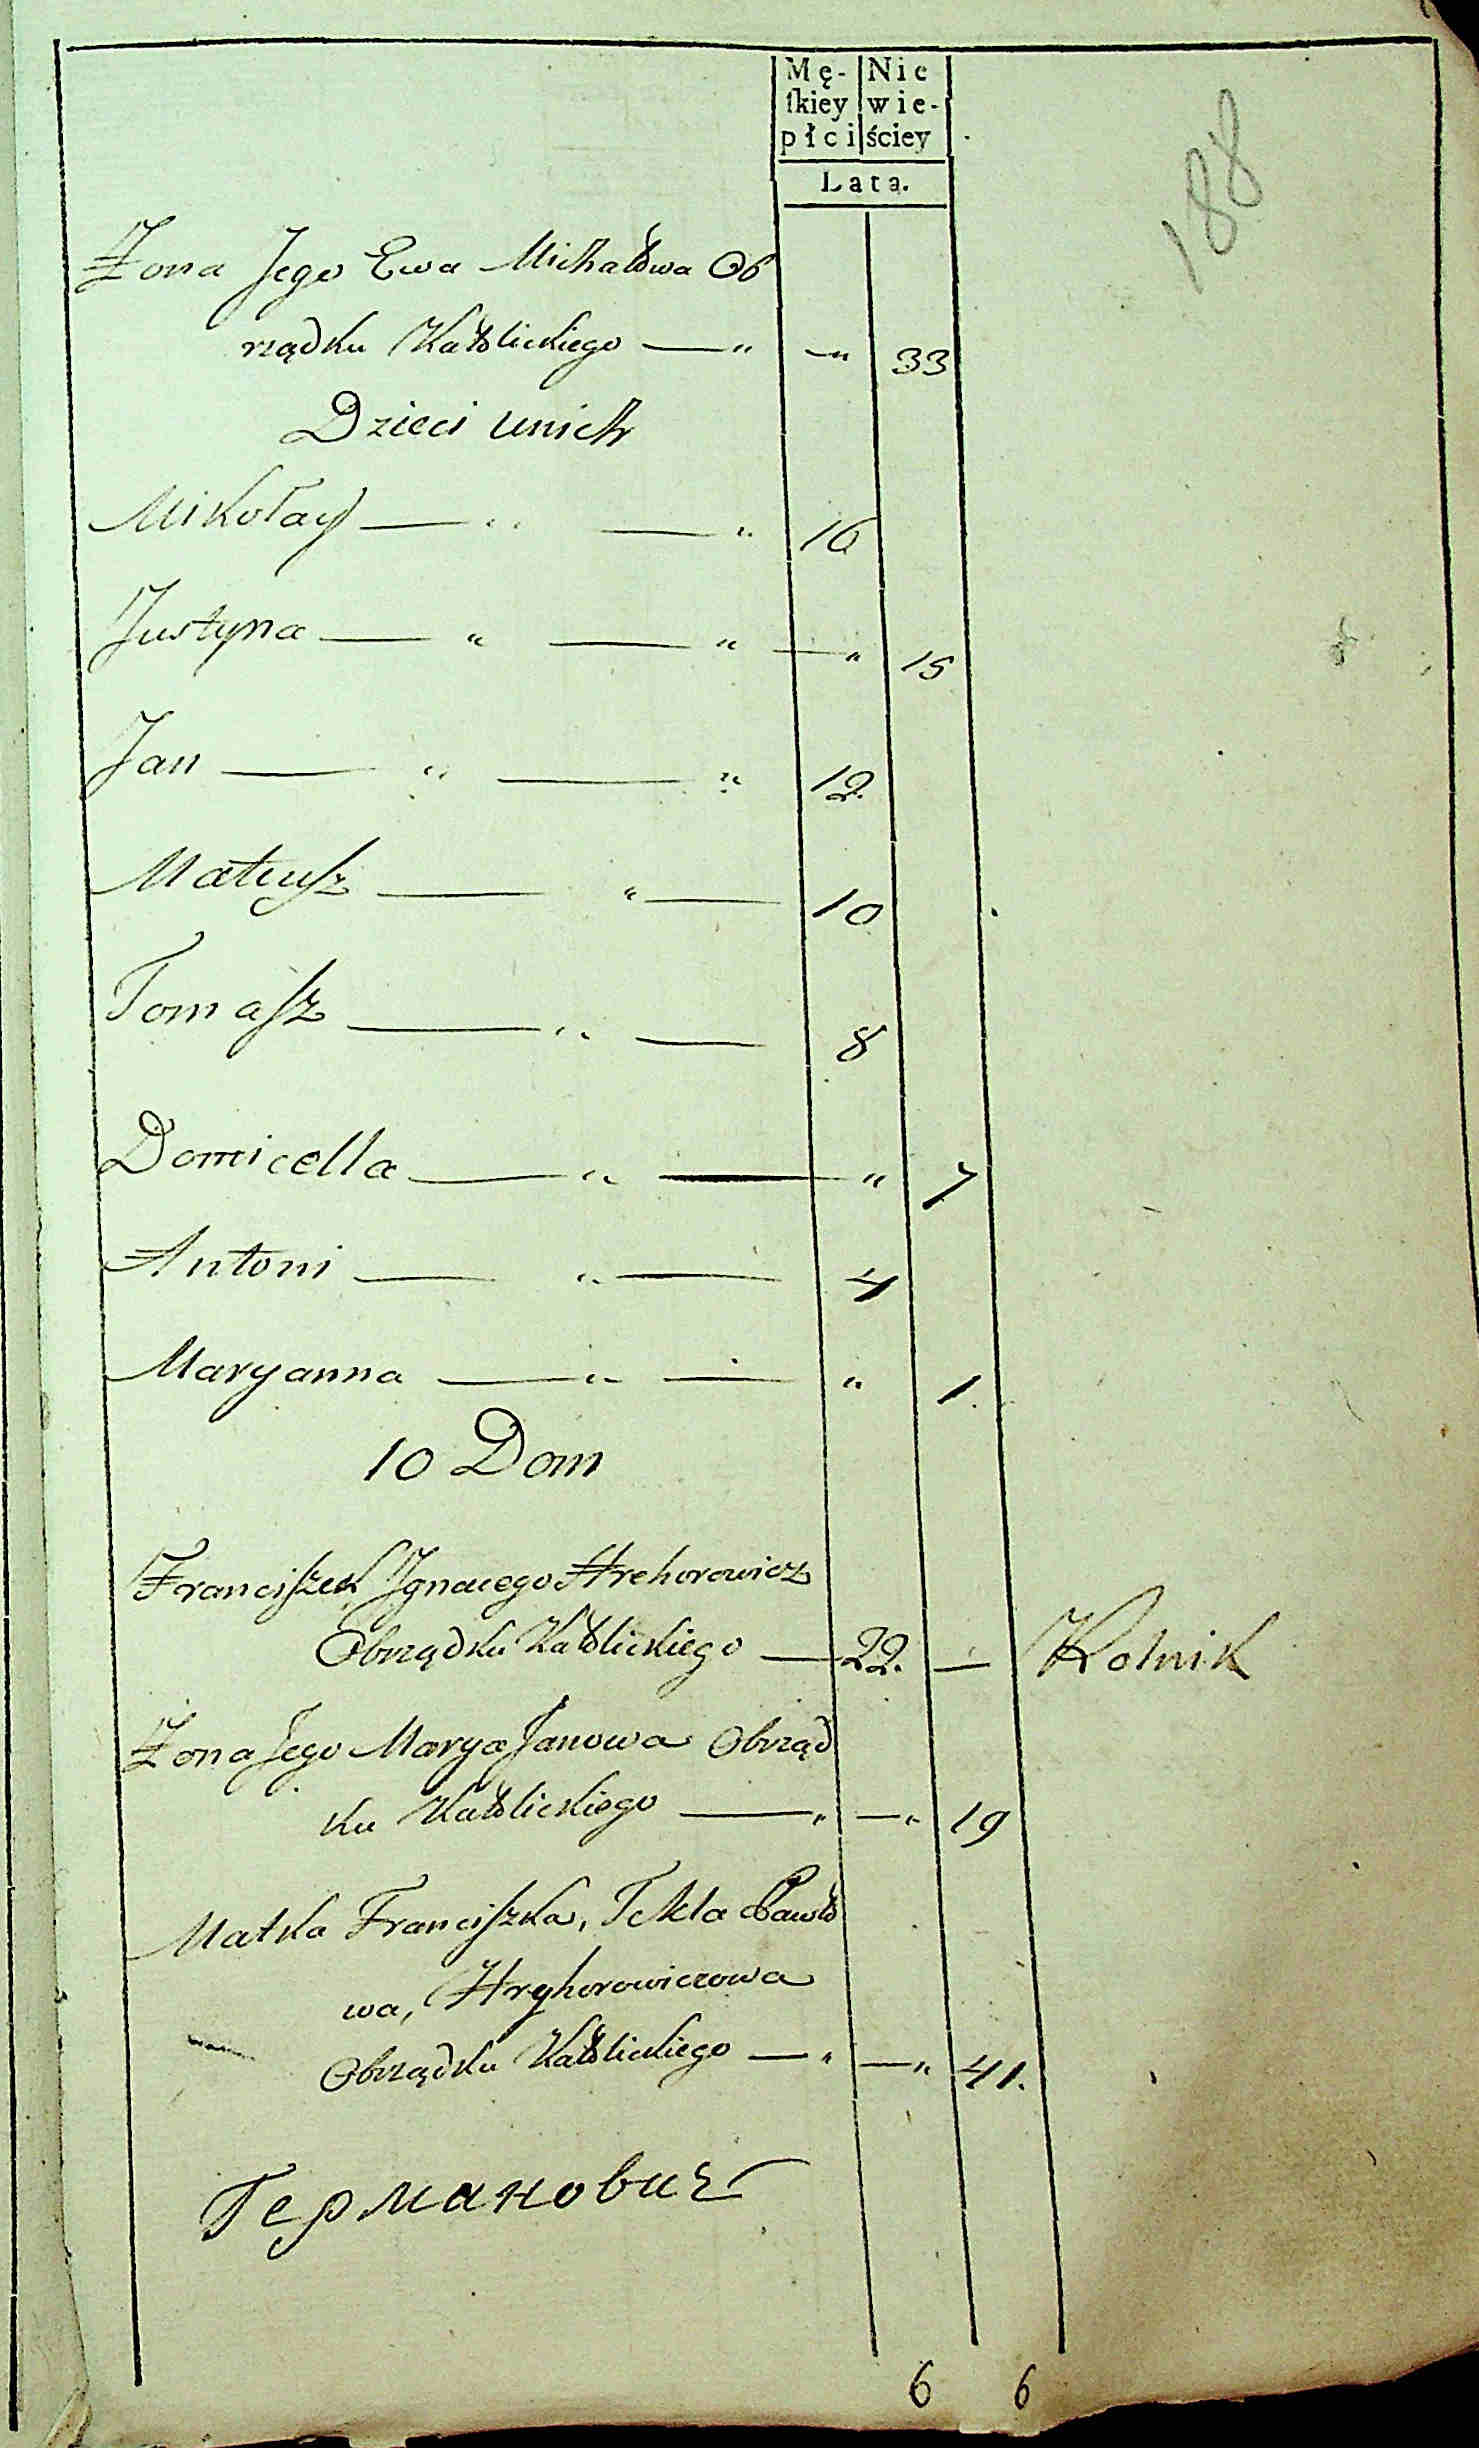 Mę- Nie
skiey wie-
płci ściey
Lata.
188
Żona Jego Ewa Michałowa Ob
rządku Katolickiego — „ — „ 33
Dzieci unich
Mikołay — „ — „ 16
Justyna — „ — „ — „ 15
Jan — „ — „ 12.
Mateusz — „ — 10
Tomasz — „ — 8
Domicella — „ — „ 7
Antoni — „ — 4
Maryanna — „ — „ 1.
10 Dom
Franciszek Ignacego Hrehorowicz
Obrządku Katolickiego — 22. — Rolnik
Żona Jego Marya Janowa Obrząd
ku Katolickiego — „ — „ 19
Matka Franciszka, Tekla Pawło
wa, Hryhorowiczowa
Obrządku Katolickiego — „ — „ 41.
Германович
6 6